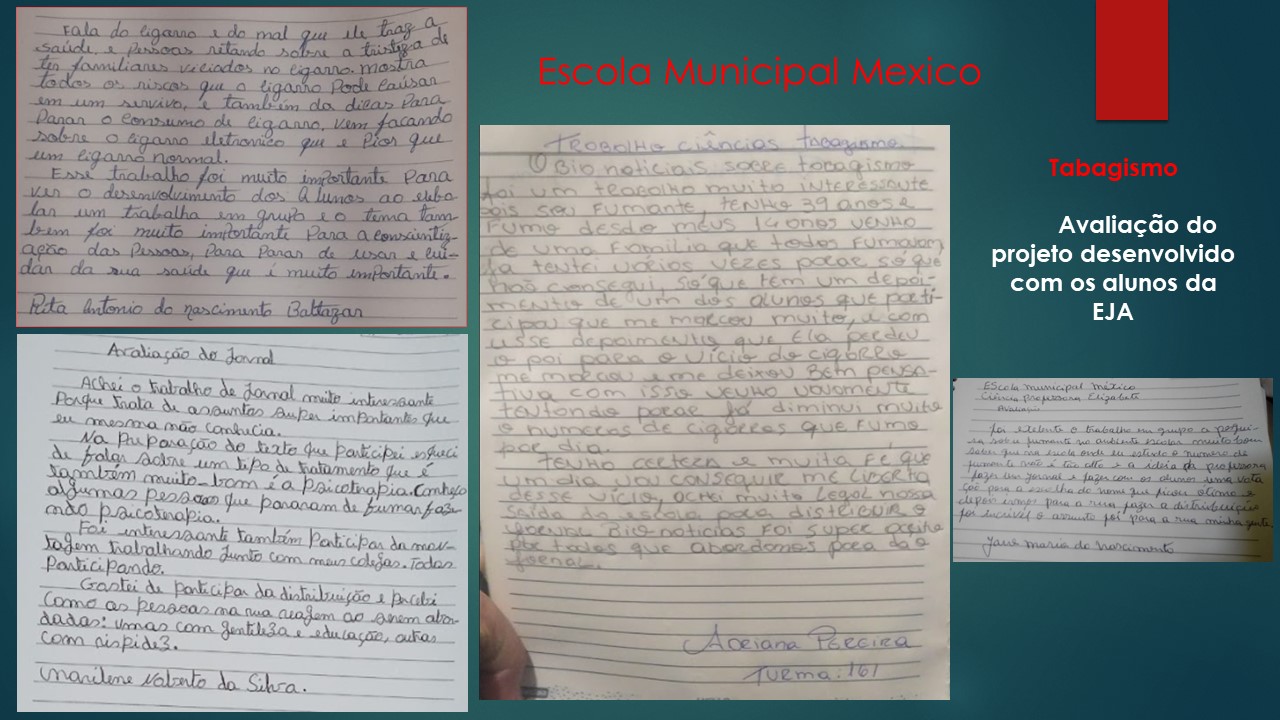 Fala do cigarro e do mal que ele traz a
saúde, e Pessoas ritando sobre a tristiza de
ter familiares viciados no cigarro. mostra
todos os riscos que o cigarro Pode causar
em um servivo, e também da dicas Para
Parar o consumo de cigarro, vem facando
sobre o cigarro eletronico que e Pior que
um cigarro normal.
Esse trabalho foi muito importante Para
ver o desenvolvimento dos Alunos ao elabo
lar um trabalha em grupo e o tema tam
bem foi muito importante Para a conscintiz-
ação das Pessoas, Para Parar de usar e cui-
dar da sua saúde que é muito importante.
Rita Antonio do nascimento Baltazar
Avaliação do Jornal
Achei o trabalho de Jornal muito interessante
Porque trata de assuntos super importantes que
eu mesma não conhecia.
Na Preparação do texto que participei esqueci
de falar sobre um tipo de tratamento que é
também muito bom é a Psicoterapia. Conheço
algumas pessoas que pararam de fumar faze
ndo psicoterapia.
Foi interessante também Participar da mon-
tagem trabalhando Junto com meus colegas. Todos
Participando.
Gostei de participar da distribuição e percebi
como as pessoas na rua reagem ao serem abor-
dadas: umas com gentileza e educação, outras
com rispidez.
Marilene Roberto da Silva.
Escola Municipal Mexico
TRABALHO ciências tabagismo
① Bio noticiais sobre tabagismo
foi um trabalho muito interessante
pois sou fumante, tenho 39 anos e
fumo desdo meus 14 anos venho
de uma familia que todos fumavam
ja tentei vários vezes parar só que
não consegui, só que tem um depoi-
mento de um dos alunos que parti-
cipou que me marcou muito, e com
esse depoimento que ela perdeu
o pai para o vício do cigarro
me marcou e me deixou bem pensa-
tiva com isso venho novamente
tentando parar já diminui muito
o numeros de cigarros que fumo
por dia.
Tenho certeza e muita fé que
um dia vou conseguir me liberta
desse vício, achei muito legal nossa
saída da escola para distribuir o
jornal Bio-noticias foi super aceito
por todos que abordamos para da o
jornal.
Adriana Pereira
Turma: 161
Tabagismo
Avaliação do
projeto desenvolvido
com os alunos da
EJA
Escola municipal México
Ciência Professora Elizabete
Avaliação
foi elebute o trabalho em grupo a pesqui-
sa sobre fumante no ambiente escolar muito bom
saber que na escola onde eu estudo o numero de
fumante não é tão alto e a ideia da professora
fazer um jornal e fazer com os alunos uma vota
ção para a escolha do nome que ficou otimo e
depois irmos para a rua fazer a distribuição
foi incrivel o assunto foi para a rua minha gente.
Jane maria do nascimento